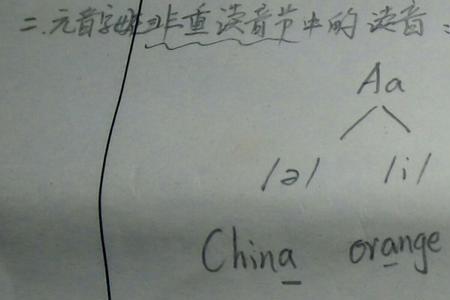 二.元音字母在非重读音节中的读音:
Aa
/ə/ /i/
China orange